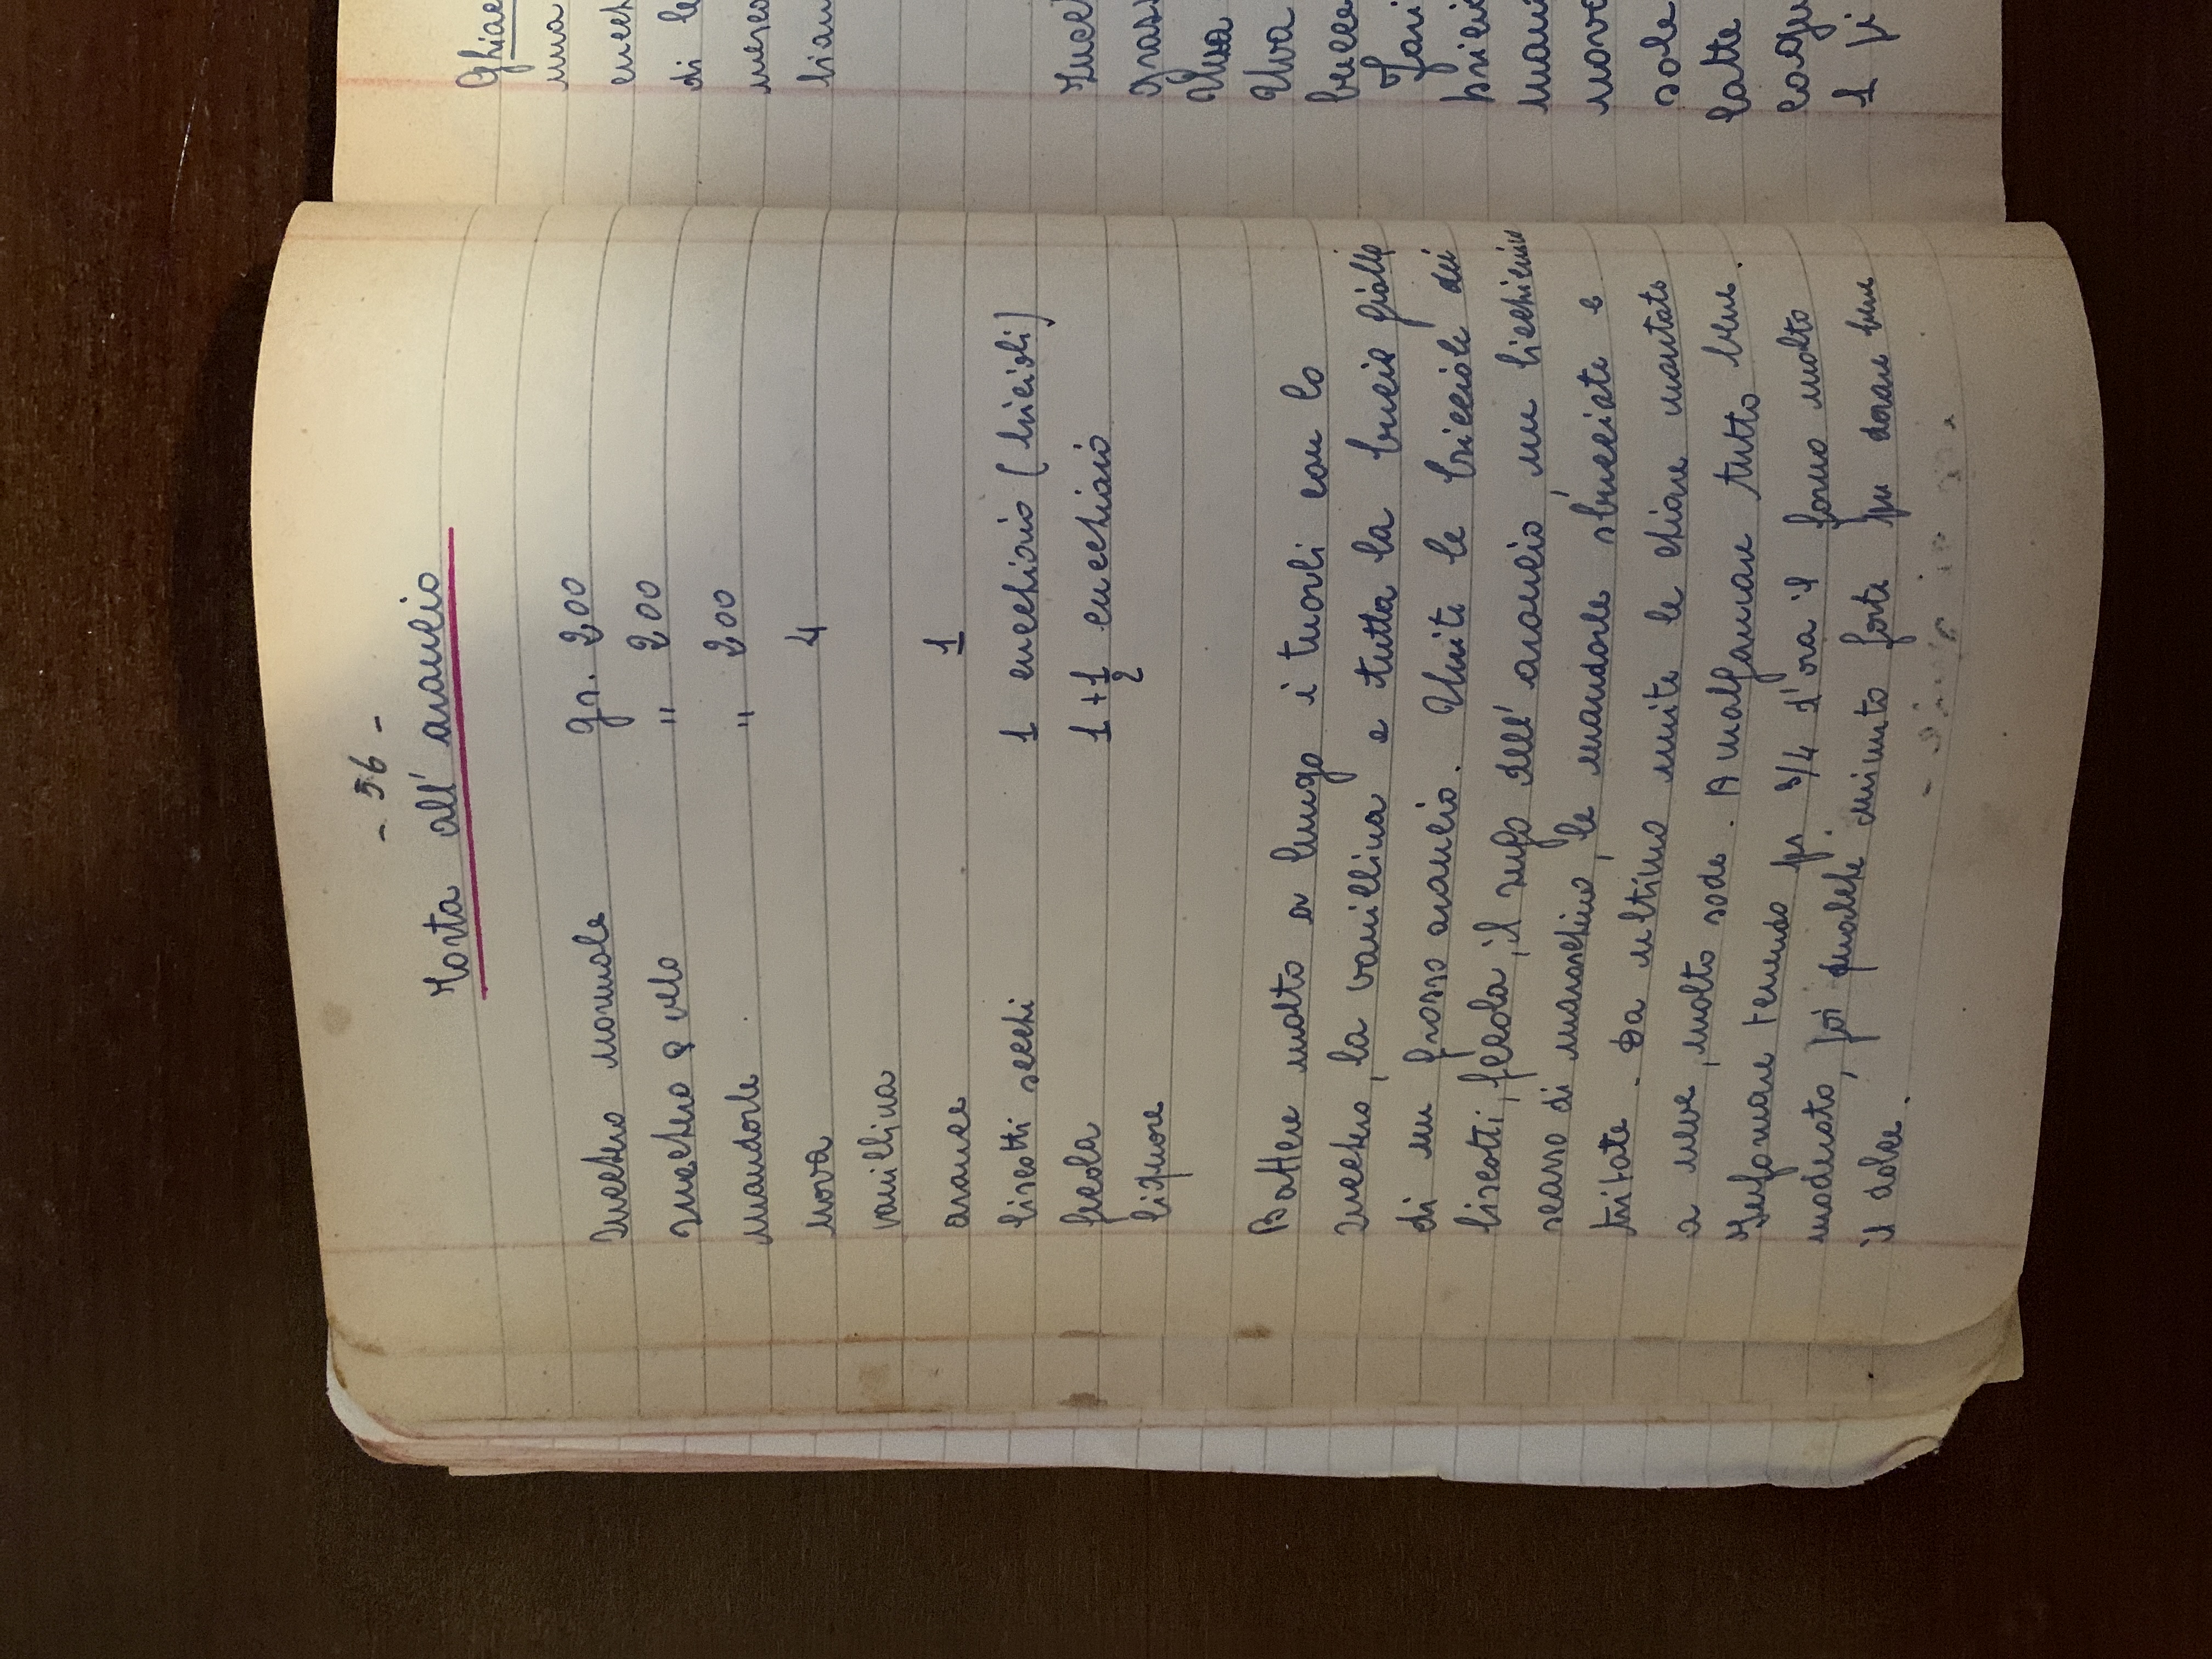 - 56 -
Torta all' arancio
Zucchero normale gr. 200
zucchero a velo " 200
mandorle " 200
uova 4
vanillina
arance 1
biscotti secchi 1 cucchiaio (bricioli)
fecola 1 + 1/2 cucchiaio
liquore
Battere molto a lungo i tuorli con lo
zucchero, la vanillina e tutta la bucia gialla
di un grosso arancio. Unite le bricciole dei
biscotti, fecola, il sugo dell' arancio, un bicchierino
scarso di maraschino, le mandorle sbucciate e
tritate. Da ultimo unite le chiare montate
a neve, molto sode. Amalgamare tutto bene.
Infornare tenendo per 3/4 d'ora il forno molto
moderato, poi qualche minuto forte per dorare bene
il dolce.
Ghiac
una
cucch
di le
mesco
bian
Zucch
grass
Uva
bucce
Fari
brici
man
uova
sole
latte
cogn
1 pi